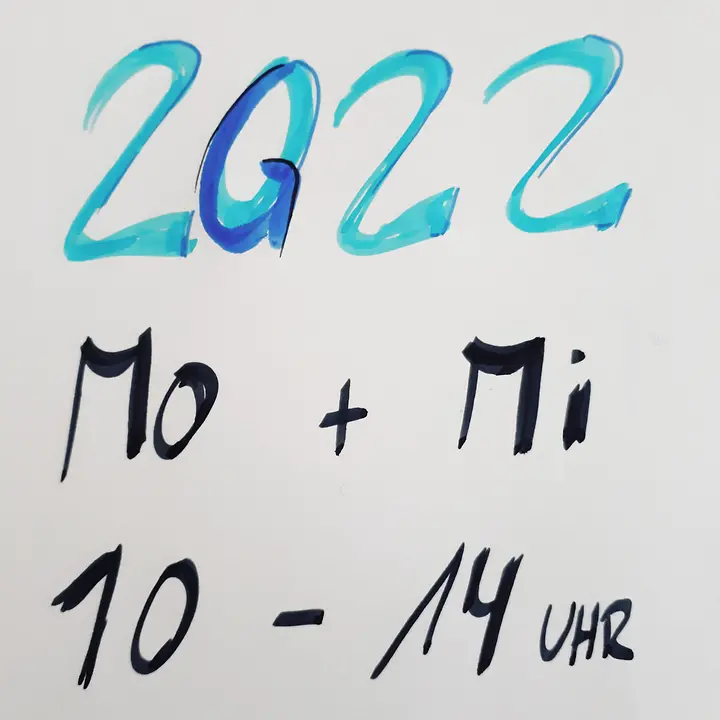 2G22
Mo + Mi
10 - 14 UHR